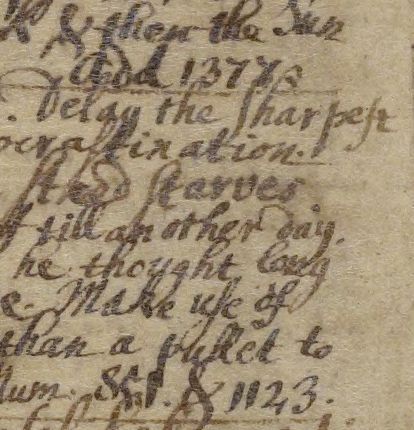 & then the Sun
Add 1377 &
. Delay the sharpest
ocrastination.
steed starves
till another day.
he thought long
e. Make use of
than a pullet to
lum. &c. & 1123.